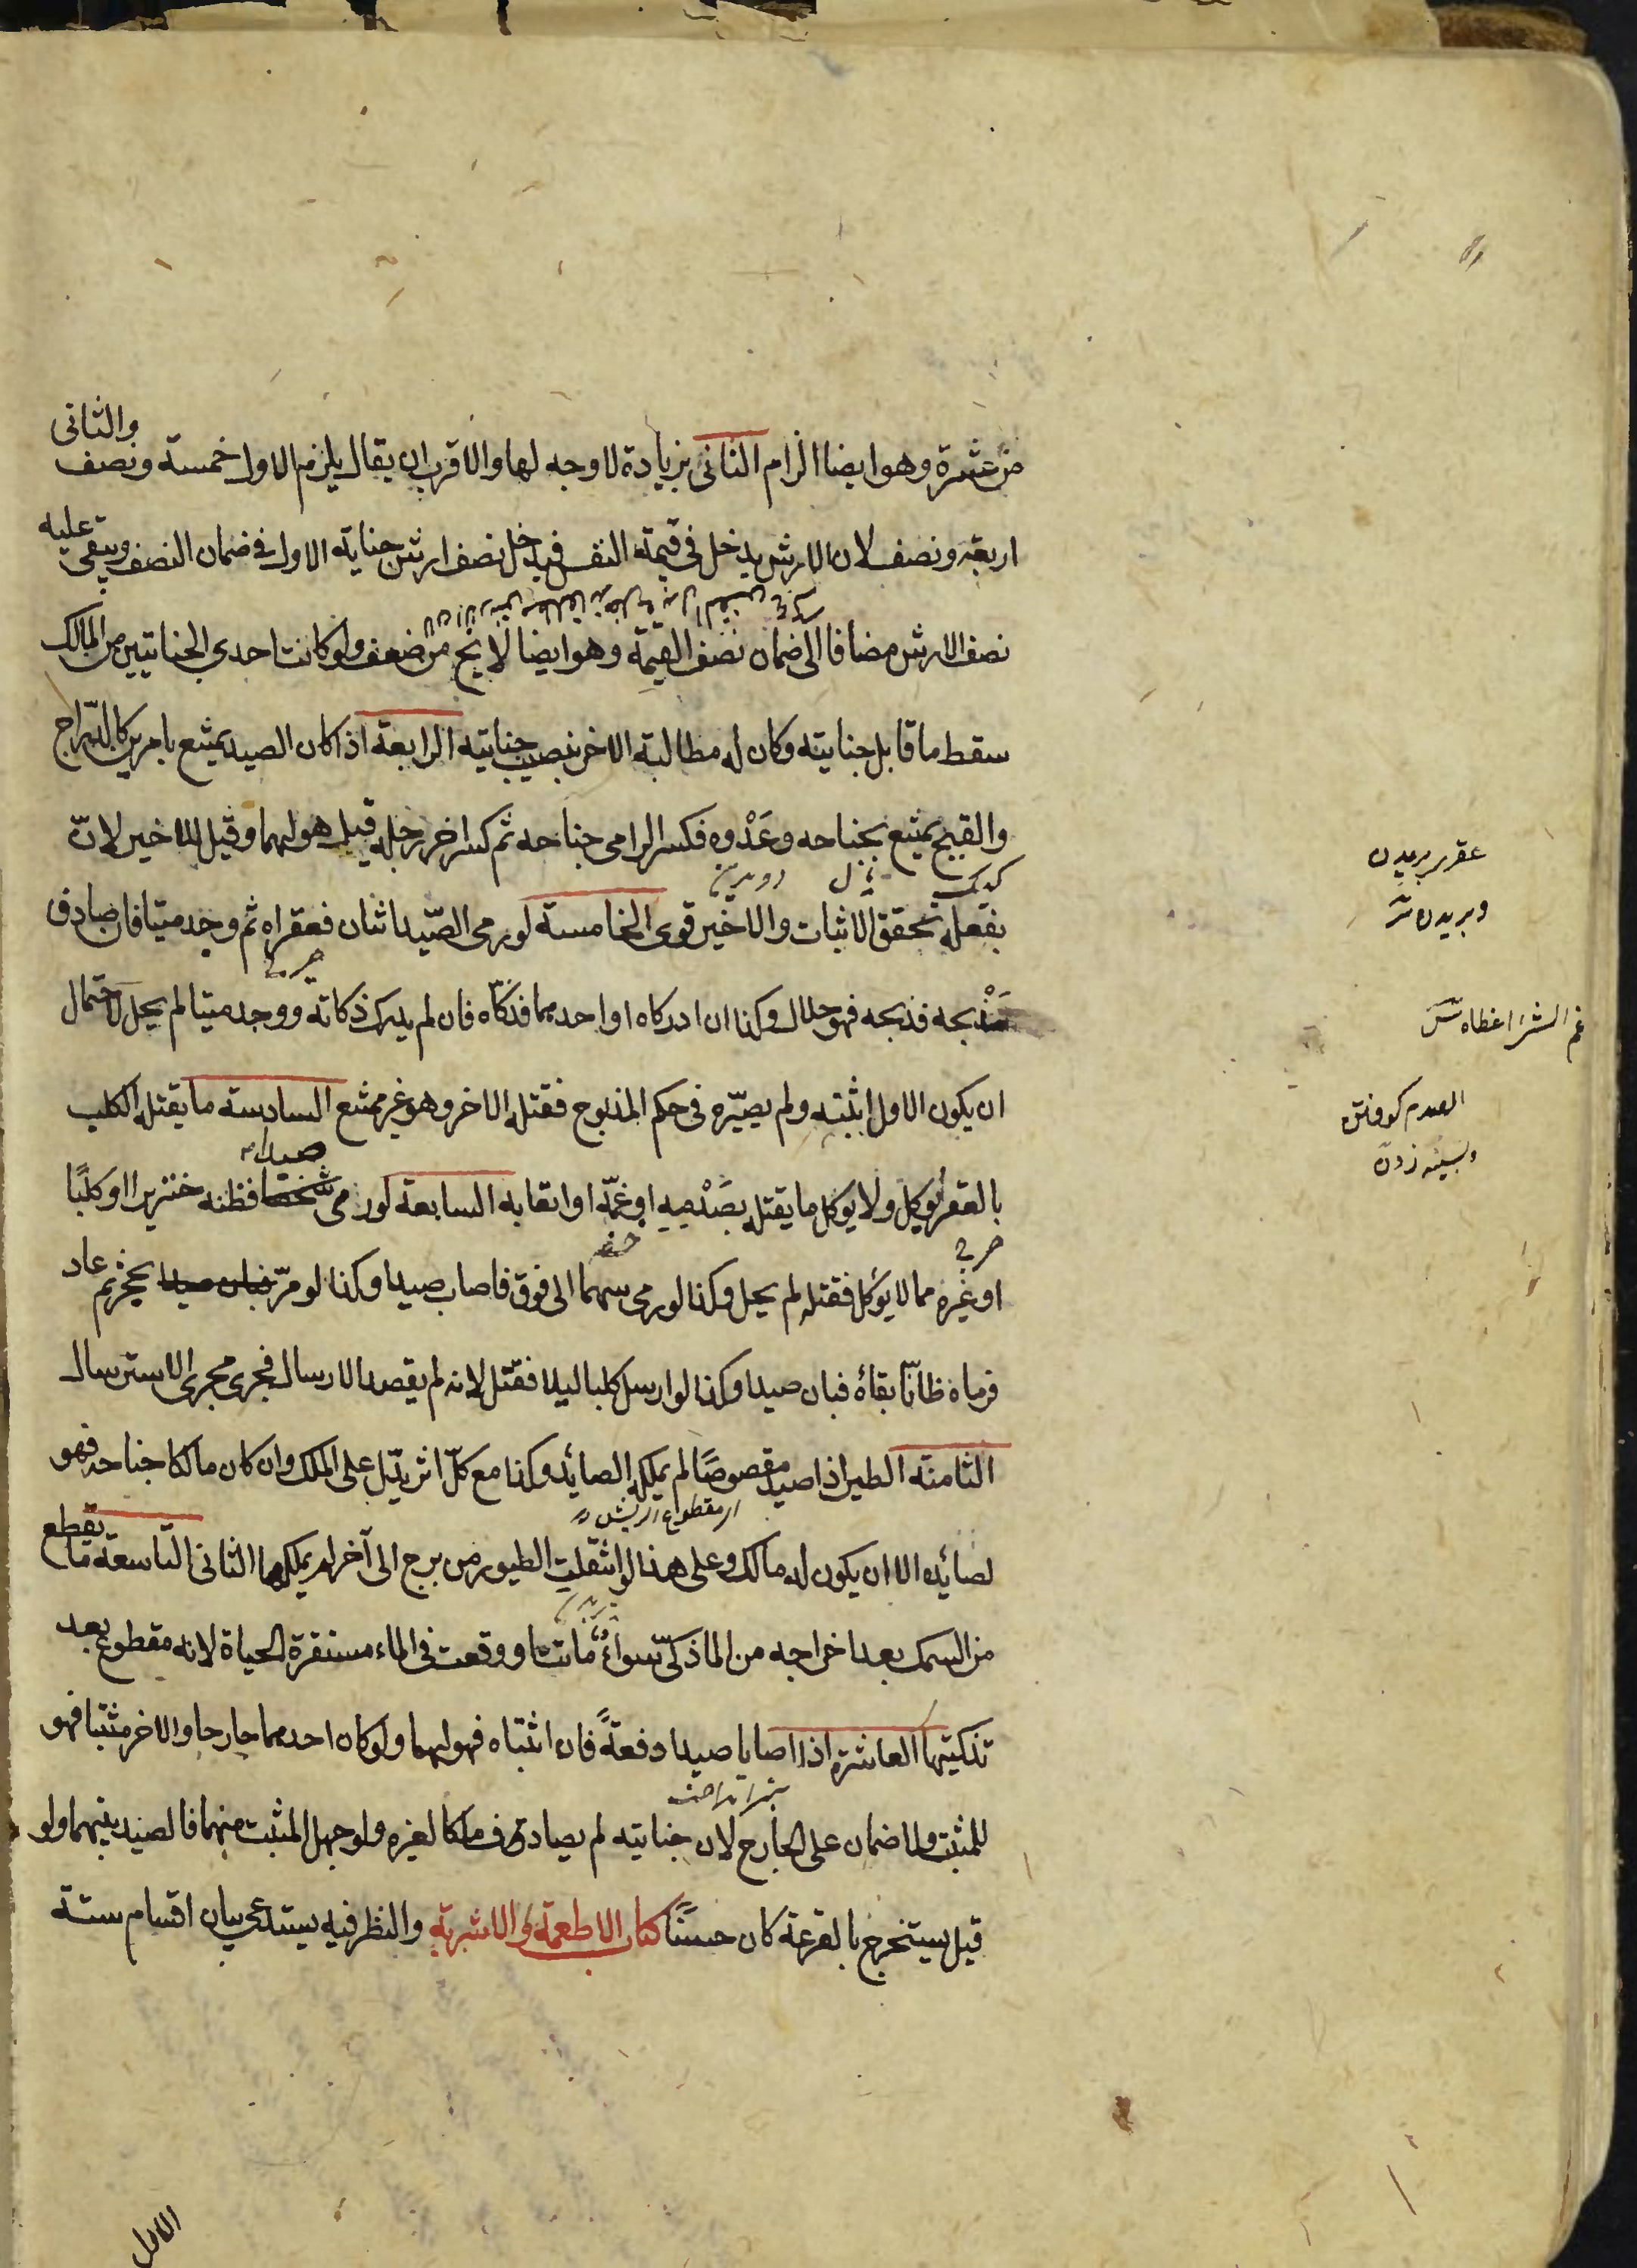 من عشرة وهو ايضا الزام الثانى بزيادة لا وجه لها والاقرب ان يقال يلزم الاول خمسة ونصف والثانى
اربعة ونصف لان الارش يدخل فى قيمة النفس فيدخل نصف ارش جناية الاول فى ضمان النصف ويبقى عليه
نصف الارش مضافا الى ضمان نصف القيمة وهو ايضا لا يخ من ضعف ولو كانت احدى الجنايتين من المالك
سقط ما قابل جنايته وكان له مطالبة الاخر بنصيب جنايته الرابعة اذا كان الصيد يمتنع بامرين كالدراج
والقبج يمتنع بجناحه وعَدْوه فكسر الرامى جناحه ثم كسر اخر رجله قيل هو لهما وقيل للاخير لانّ
بفعله تحقق الاثبات والاخير قوى الخامسة لو رمى الصّيد اثنان فعقراه ثم وجد ميتا فان صادف
مَذْبحه فذبحه فهو حلال وكذا ان ادركاه او احدهما فذكّاه فان لم يدرك ذكاته ووجد ميتا لم يحل لاحتمال
ان يكون الاول اثبته ولم يصيّره فى حكم المذبوح فقتله الاخر وهو غير ممتنع السادسة ما يقتله الكلب
بالعقر يوكل ولا يوكل ما يقتله بصَدْمِهِ او غمّه او اتعابه السابعة لو رمى شخصا صيدا فظنه خنزيرا او كلبًا
او غيره مما لا يؤكل فقتله لم يحل وكذا لو رمى سهما الى فوق فاصاب صيدا وكذا لو مرّ فبان صيدا بحجر ثم عاد
فرماه ظانّا بقاءه فبان صيدا وكذا لو ارسل كلبا ليلا فقتل لانه لم يقصد الارسال فجرى مجرى الاسترسال
الثامنة الطير اذا صيد مقصوصًا لم يملكه الصائد وكذا مع كلّ اثر يدلّ على الملك وان كان مالكا جناحه فهو
ار مقطوع الريش
لصائده الا ان يكون له مالك وعلى هذا لو انتقلت الطيور من برج الى آخر لم يملكها الثانى التاسعة ما يقطع
من السمك بعد اخراجه من الما ذكىّ سواءٌ ماتت او وقعت فى الماء مستقرة الحياة لانه مقطوع بعد
تذكيتها العاشرة اذا اصابا صيدا دفعةً فان اثبتاه فهو لهما ولو كان احدهما جارحا والاخر مثبتا فهو
للمثبت ولا ضمان على الجارح لان جنايته لم يصادف ملكا لغيره ولو جهل المثبت منهما فالصيد بينهما ولو
قيل يستخرج بالقرعة كان حسنًا كتاب الاطعمة والاشربة والنظر فيه يستدعى بيان اقسام ستة
الاول
عقر بريدن
وبريدن
غم الشئ اغطاه
الصدم كوفتن
وبسينه زدن